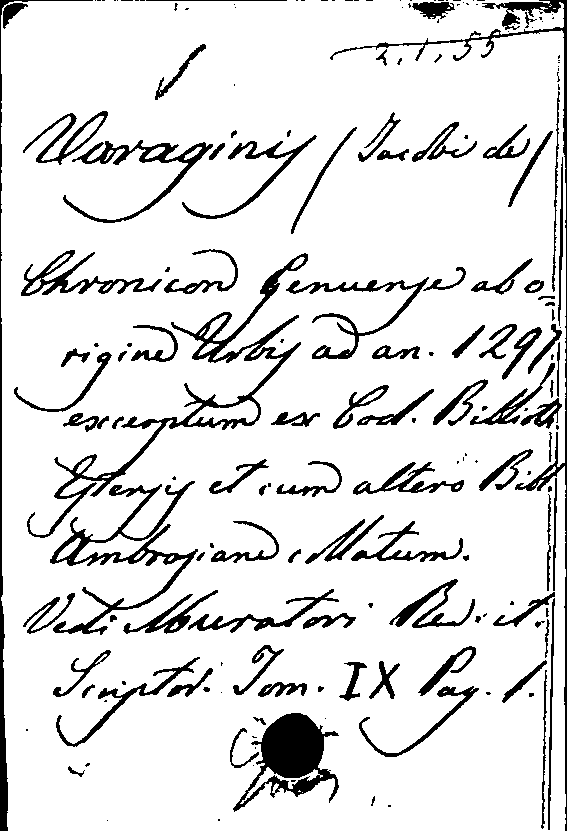 2.1.55
Varaginis (Jacobi de)
Chronicon Genuense ab o=
rigine Urbis ad an. 1297,
excerptum ex Cod. Biblioth.
Estensis et cum altero Bibl.
Ambrosiane collatum.
Vedi Muratori Rer. it.
Scriptor. Tom. IX Pag. 1.